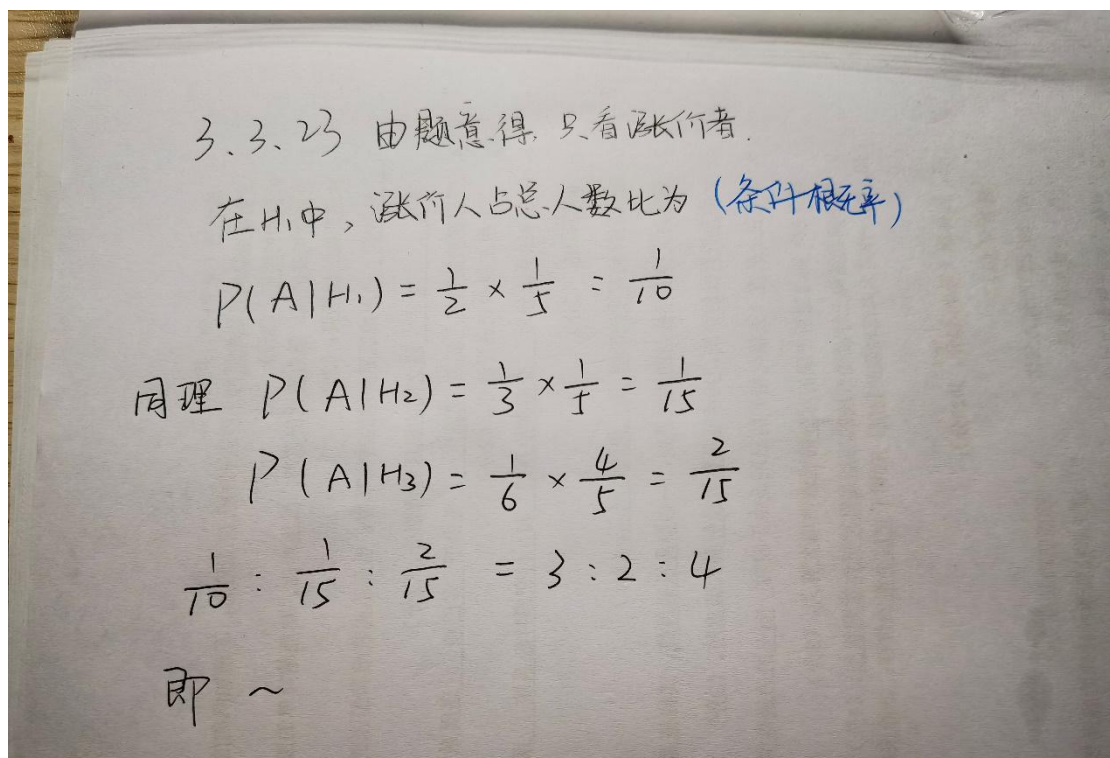 3、3、23 由题意得,只看涨价者.
在H₁中,涨价人占总人数比为(条件概率)
P(A|H₁) = 1/2 × 1/5 = 1/10
同理 P(A|H₂) = 1/3 × 1/5 = 1/15
P(A|H₃) = 1/6 × 4/5 = 2/15
1/10 : 1/15 : 2/15 = 3 : 2 : 4
即 ~